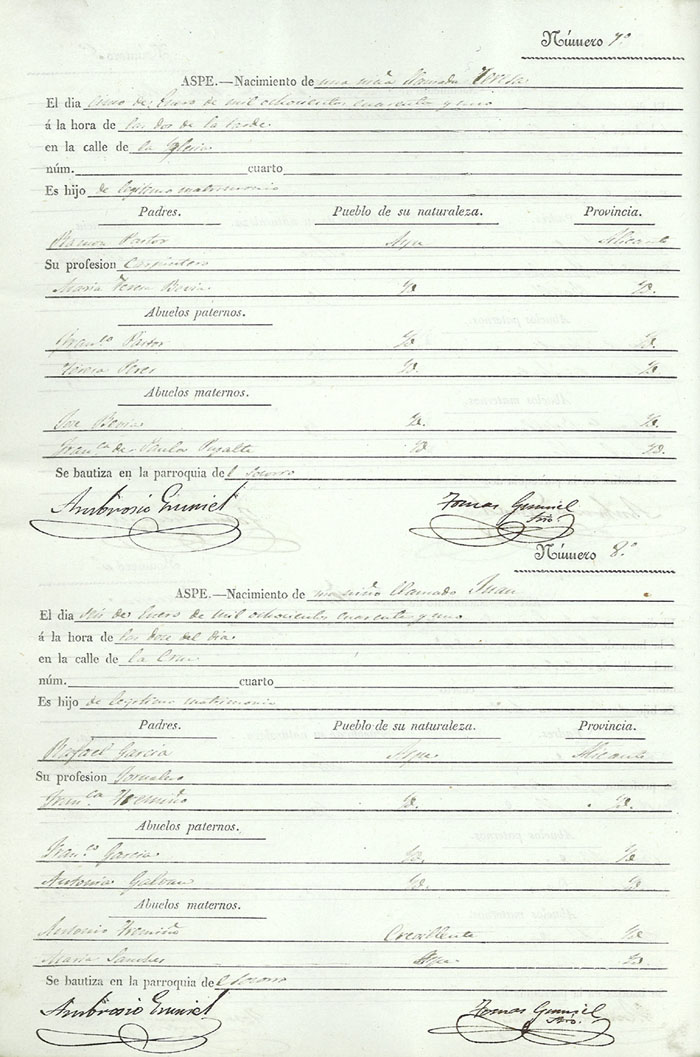 Número 7º
ASPE.—Nacimiento de una niña llamada Teresa
El dia cinco de Enero de mil ochocientos cuarenta y uno
á la hora de las dos de la tarde
en la calle de la Iglesia
núm. cuarto
Es hijo de legitimo matrimonio
Padres. Pueblo de su naturaleza. Provincia.
Ramon Pastor Aspe Alicante
Su profesion Carpintero
Maria Teresa Bovia Yd. Yd.
Abuelos paternos.
Franco. Pastor Yd. Yd.
Teresa Peres Yd. Yd.
Abuelos maternos.
Jose Bovia Yd. Yd.
Franca. de Paula Yd. Yd.
Se bautiza en la parroquia del Socorro
Ambrosio Tomas
Srio.
Número 8.º
ASPE.—Nacimiento de un niño llamado Juan
El dia seis de Enero de mil ochocientos cuarenta y uno
á la hora de las doce del dia
en la calle de la Cruz
núm. cuarto
Es hijo de legitimo matrimonio
Padres. Pueblo de su naturaleza. Provincia.
Rafael Garcia Aspe Alicante
Su profesion Jornalero
Franca. Tremiño Yd. Yd.
Abuelos paternos.
Franco. Garcia Yd. Yd.
Antonia Galvan Yd. Yd.
Abuelos maternos.
Antonio Tremiño Crevillente Yd.
Maria Sanches Aspe Yd.
Se bautiza en la parroquia del Socorro
Ambrosio Tomas
Srio.